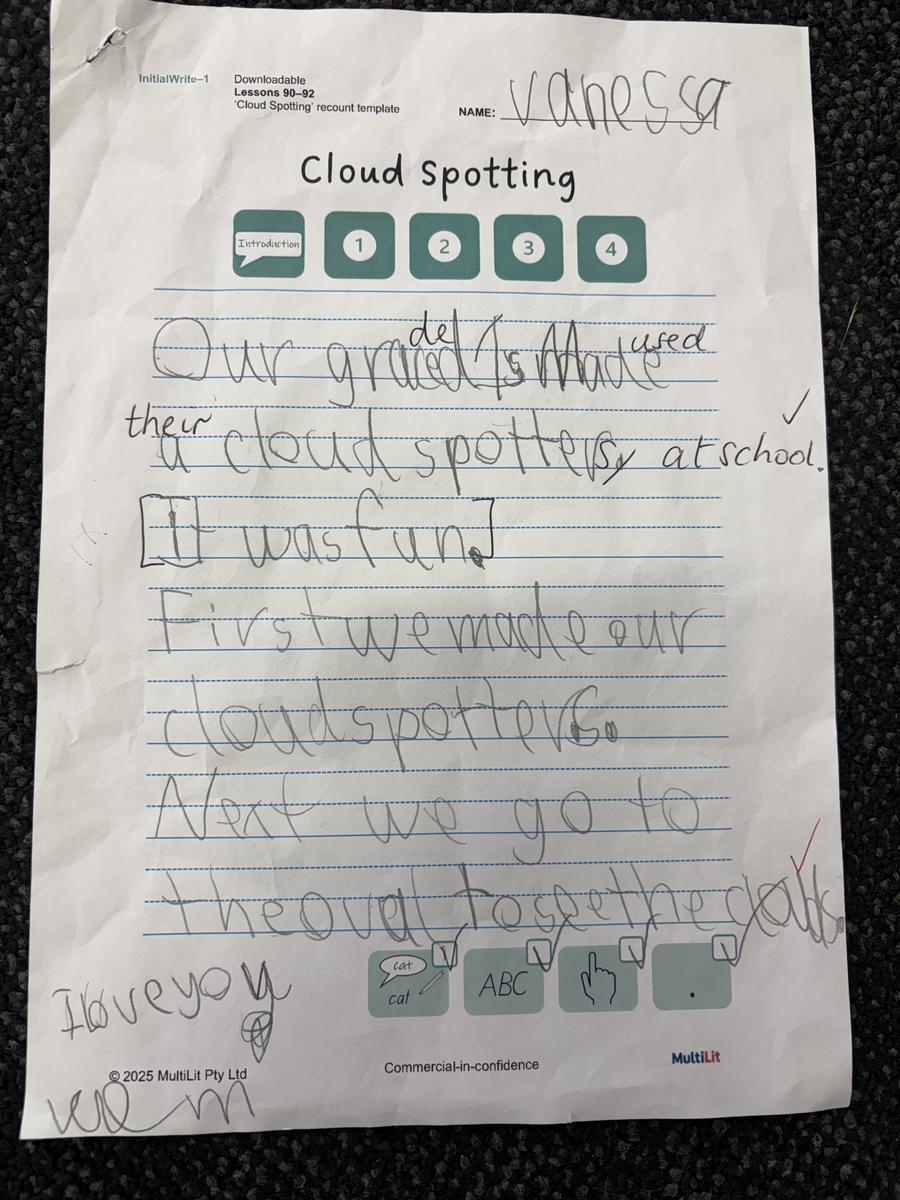 InitialWrite–1
Downloadable
Lessons 90–92
'Cloud Spotting' recount template
NAME: vanessa
Cloud Spotting
Introduction 1 2 3 4
del used
Our Is Made
their
a cloud spotters at school.
[It was fun.]
First we made our
cloud spotters.
Next we go to
the oval to see the
cat
cat
ABC
.
I love you
© 2025 MultiLit Pty Ltd
Commercial-in-confidence
MultiLit